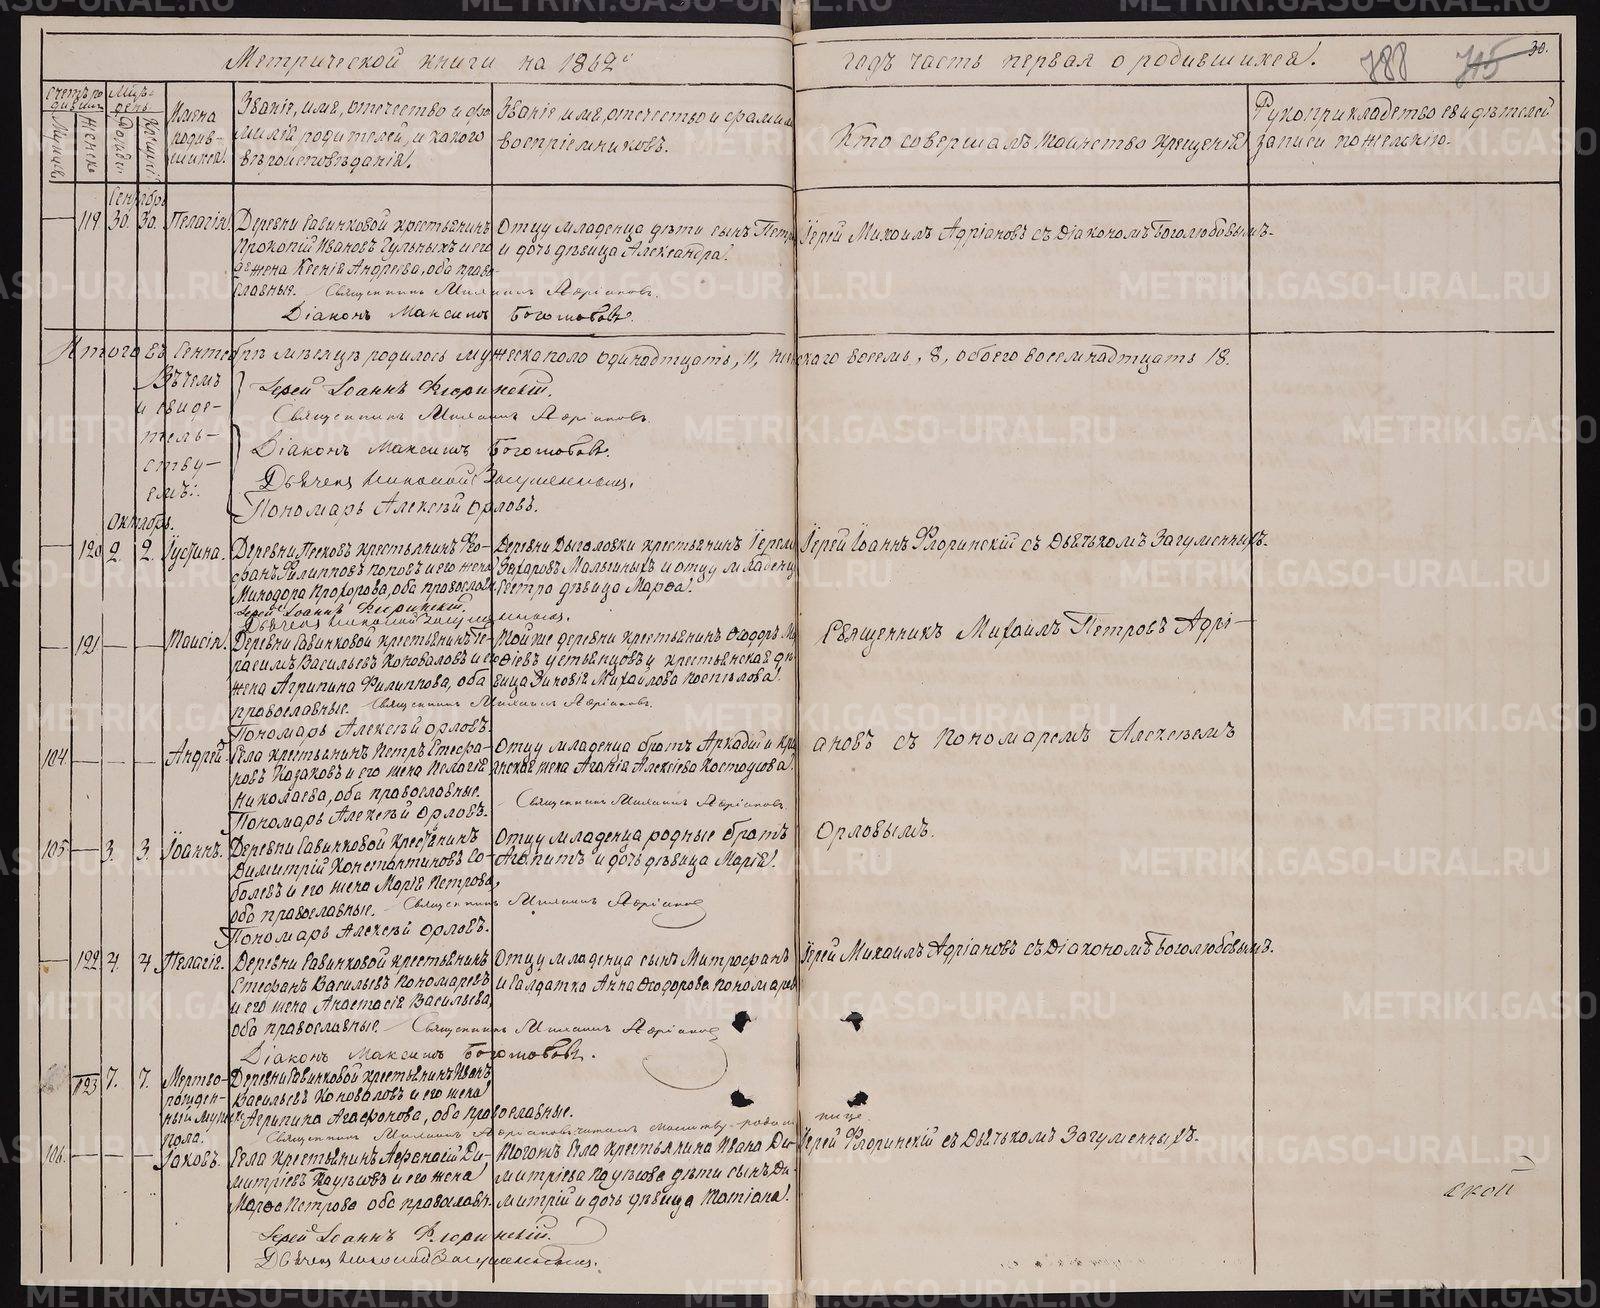 Метрической книги на 1862й
годъ часть первая о родившихся.
788
715
30.
Счетъ родившихся
Мужеска
Женска
Мѣсяцъ и день
Рожденія
Крещенія
Имена родившихся.
Званіе, имя, отечество и фамилія родителей, и какого вѣроисповѣданія.
Званіе имя, отечество и фамилія воспріемниковъ.
Кто совершалъ таинство крещенія
Рукоприкладство свидѣтелей записи по желанію.
Сентябрь
119 30. 30. Пелагія.
Деревни Савинковой крестьянинъ
Прокопій Ивановъ Гульныхъ и его
жена Ксенія Андреева, оба право-
славныя. Священникъ Михаилъ Адріановъ.
Діаконъ Максимъ Боголюбовъ.
Отцу младенца дѣти сынъ Петръ
и дочь дѣвица Александра.
Іерей Михаилъ Адріановъ съ Діакономъ Боголюбовымъ.
Итого въ Сентебрѣ мѣсяцѣ родилось мужеска пола одинадцать, 11, женскаго восемь, 8, обоего восемнадтцать 18.
Въ чемъ
и свиде-
тель-
ству-
емъ:
Іерей Іоаннъ Флоринскій.
Священникъ Михаилъ Адріановъ.
Діаконъ Максимъ Боголюбовъ.
Дьячекъ Николай Загуменныхъ.
Пономарь Алексѣй Орловъ.
Октябрь.
120 2. 2. Іустина.
Деревни Песковъ крестьянинъ Ѳео-
фанъ Филипповъ Поповъ и его жена
Минодора Прохорова, оба православн.
Іерей Іоаннъ Флоринскій.
Дьячекъ Николай Загуменныхъ.
Деревни Дыгаловки крестьянинъ
Захаровъ Малыгиныхъ и отцу младенца
сестра дѣвица Марѳа.
Іерей Іоаннъ Флоринскій съ Дьячькомъ Загуменныхъ.
121 Таисія.
Деревни Савинковой крестьянинъ Ге-
расимъ Васильевъ Коноваловъ и его
жена Агрипина Филиппова, оба
православные. Священникъ Михаилъ Адріановъ.
Пономарь Алексѣй Орловъ.
Той же деревни крестьянинъ Ѳеодоръ
Устьянцовъ и крестьянская дѣ-
вица Зиновія Михайлова Поспѣлова.
Священникъ Михаилъ Петровъ Адрі-
104 Андрей.
Села крестьянинъ Петръ Стефа-
новъ Казаковъ и его жена Пелагія
Николаева, оба православные.
Пономарь Алексѣй Орловъ.
Отцу младенца братъ Аркадій и кре-
стьянская жена Агапія Алексіева Костоусова.
Священникъ Михаилъ Адріановъ.
ановъ съ Пономаремъ Алексѣемъ
105 3. 3. Іоаннъ.
Деревни Савинковой крестьянинъ
Димитрій Константиновъ Со-
болевъ и его жена Марія Петрова,
оба православные. Священникъ Михаилъ Адріановъ
Пономарь Алексѣй Орловъ.
Отцу младенца родные братъ
Агапитъ и дочь дѣвица Марія.
Орловымъ.
122 4. 4. Пелагія.
Деревни Савинковой крестьянинъ
Стефанъ Васильевъ Пономаревъ
и его жена Анастасія Васильева,
оба православные. Священникъ Михаилъ Адріановъ
Діаконъ Максимъ Боголюбовъ.
Отцу младенца сынъ Митрофанъ
и Салдатка Анна Ѳеодорова Пономарева
Іерей Михаилъ Адріановъ съ Діакономъ Боголюбовымъ.
123 7. 7. Мертво-
рожден-
ный муж.
пола.
Деревни Савинковой крестьянинъ Иванъ
Васильевъ Коноваловъ и его жена
Агрипина Агафонова, оба православные.
Священникъ Михаилъ Адріановъ читалъ молитву родильнице
106. Іаковъ.
Села крестьянинъ Аѳанасій Ди-
митріевъ Паузовъ и его жена
Марѳа Петрова оба православн.
Іерей Іоаннъ Флоринскій.
Дьячекъ Николай Загуменныхъ.
Тогожъ Села крестьянина Ивана Ди-
митріева Паузова дѣти сынъ Ди-
митрій и дочь дѣвица Татіана.
Іерей Флоринскій съ Дьячькомъ Загуменныхъ.
METRIKI.GASO-URAL.RU